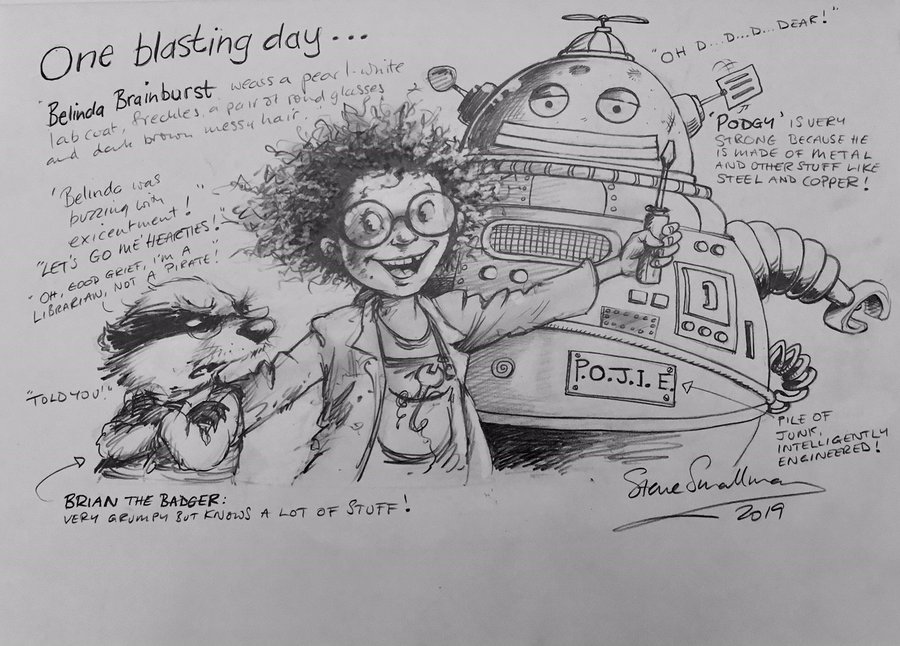 One blasting day...
"Belinda Brainburst wears a pearl-white
lab coat, freckles, a pair of round glasses
and dark brown messy hair."
'Belinda was
buzzing with
exicentment!"
"LET'S GO ME HEARTIES!"
"OH, GOOD GRIEF, I'M A
LIBRARIAN, NOT A PIRATE!"
"TOLD YOU!"
BRIAN THE BADGER:
VERY GRUMPY BUT KNOWS A LOT OF STUFF!
"OH D...D...D...DEAR!"
'PODGY' IS VERY
STRONG BECAUSE HE
IS MADE OF METAL
AND OTHER STUFF LIKE
STEEL AND COPPER!
P.O.J.I.E.
PILE OF
JUNK,
INTELLIGENTLY
ENGINEERED!
Steve Smallman
2019